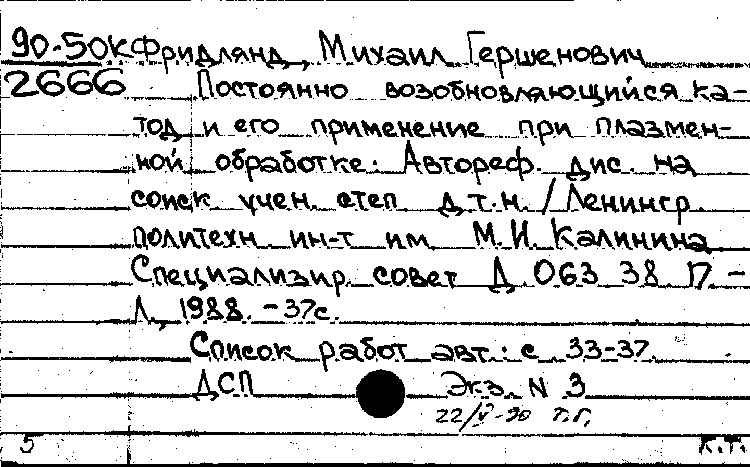 90-50К Фридлянд, Михаил Гершенович
2666 Постоянно возобновляющийся ка-
тод и его применение при плазмен-
ной обработке: Автореф. дис. на
соиск учен. степ д.т.н. / Ленингр.
политехн ин-т им М.И. Калинина
Специализир. совет Д 063 38 17. -
Л., 1988. - 37с.
Список работ авт.: с 33-37.
ДСП Экз. N 3
22/V-90 Т.Г.
5 К.Т.